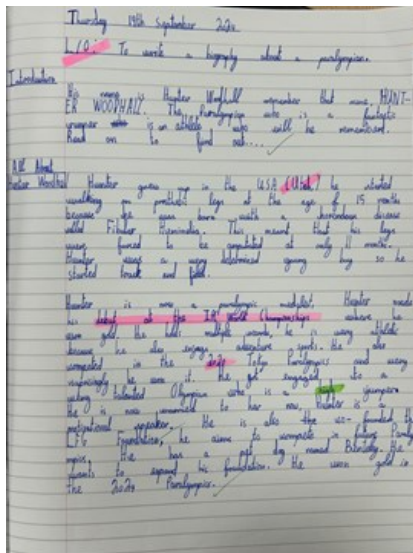 Thursday 19th September 2024
L/O: To write a biography about a paralympian.
Introduction
His name is Hunter Woodhall remember that name. HUNT-
ER WOODHALL. The Paralympian who is a fantastic
runner is an athlete who will be remembered.
Read on to find out....
All About
Hunter Woodhall
Hunter grew up in the USA (Utah) he started
walking on prosthetic legs at the age of 15 months
because he was born with a horrendous disease
called Fibular Hemimelia. This meant that his legs
were forced to be amputated at only 11 months.
Hunter was a very determined young boy so he
started track and field.
Hunter is now a paralympic medalist. Hunter made
his debut at the World Championships where he
won gold. He holds multiple awards he is very athletic
because he also enjoys adventure sports. He also
competed in the Tokyo Paralympics and
he won it. He got engaged to a
very talented Olympian who is a jumper
He is now married to her now. Hunter is a
motivational speaker. He is also the co-founded the
Foundation, he aims to compete in future Paraly
mpics. He has a pet dog named
wants to expand his foundation. He won gold in
the 2024 Paralympics.